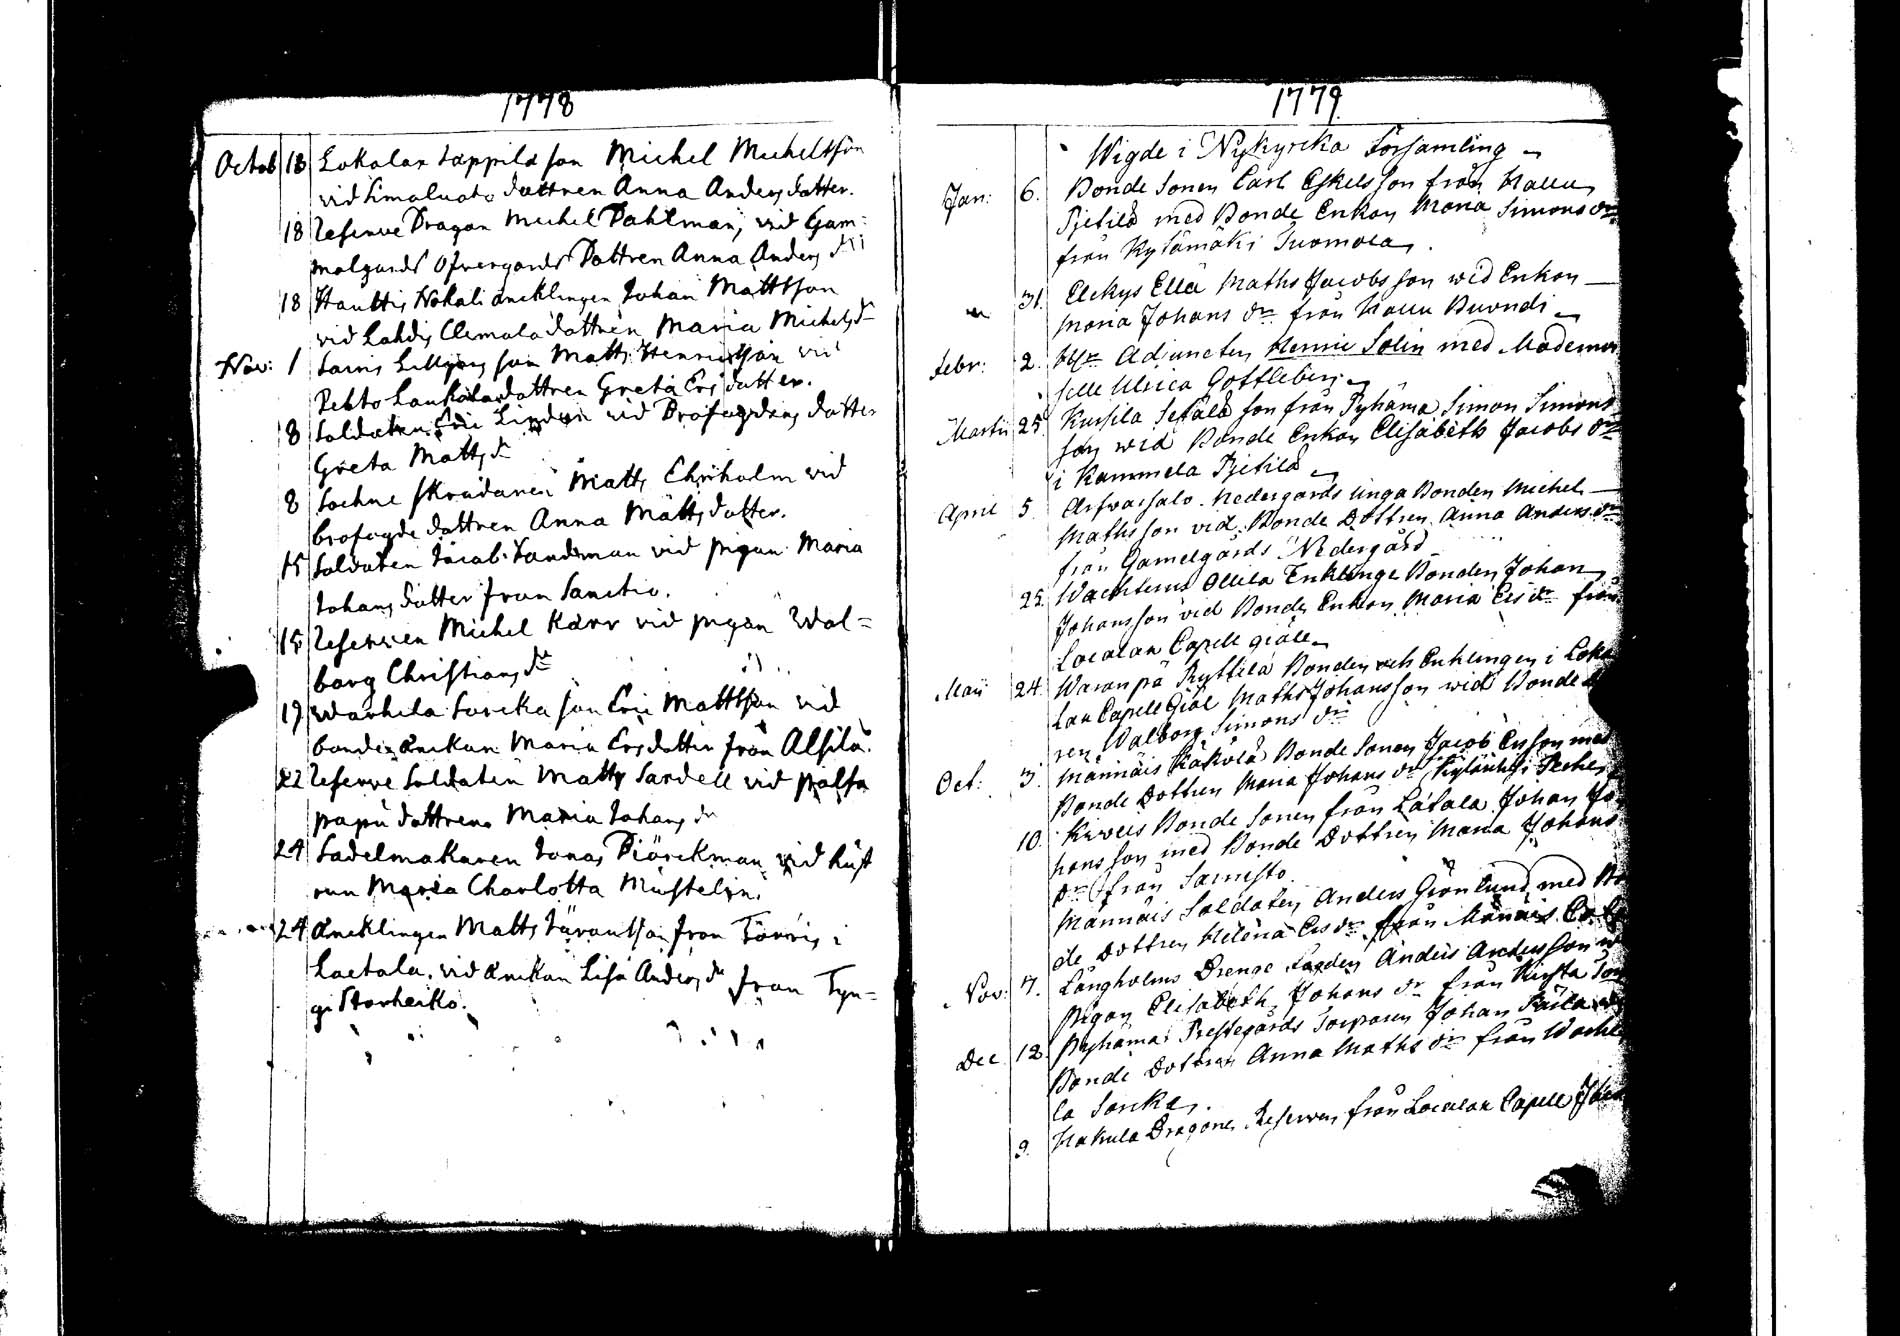 1778
Octob 18 Lokalax Sappila son Michel Michelsson
vid Simaluoto dottren Anna Andersdotter.
18 Reserve Dragon Michel Dahlman, vid Gam=
malgårds Öfvergårds Dottren Anna Anders dr
18 Hauttis Nokali æncklingen Johan Mattsson
vid Lahdis Clemola dottren Maria Michels dr
Nov: 1 son Matts Henricsson vid
Pehto Laukola dottren Greta Ersdotter.
8 Soldaten Eric Lindgren vid Brofogdens dotter
Greta Matts dr
8 Sochne skrädaren Matts Ehrnholm vid
brofogde dottren Anna Mattsdotter.
15 Soldaten Jacob Sandsman vid pigan Maria
Johansdotter from Santtio.
15 Reserven Michel Karr vid pigan Wal=
borg Christians dr
19 Warhela Sorcka son Eric Mattsson vid
bonde ænckan Maria Ersdotter från Alsila.
22 Reserve Soldaten Matts Sardell vid palsa
papu dottren Maria Johans dr
24 Sadelmakaren Jonas Biörckman vid hust
run Maria Charlotta Mustelin.
24 æncklingen Matts from i
Laetala. vid ænckan Lisa Anders dr from Tyn=
gi Storheiko.
1779
Wigde i Nykyrcka Församling
Jan: 6. Bonde Sonen Carl Eskelsson från Hallu
Pietilä med Bonde Enkan Maria Simons dr
från Kylämäki Tuomola.
31. Elckys Ellä Maths Jacobsson wid Enkan
Maria Johans dr från Hallu
Febr: 2. Adjuncten Henric Solin med Mademoi
selle Ulrica Gottleben
Martii 25. Kursila Seppälä son från Pyhämä Simon Simons
son wid Bonde Enkan Elisabeth Jacobs dr
i Kammela Pietilä
April 5. Arfwassalo Nedergårds unga Bonden Michel
Mathsson vid Bonde Dottren Anna Anders dr
från Gamelgårds Nedergård
25 Ollila Enklinge Bonden Johan
Johansson vid Bonde Enkan Maria Ers dr från
Localax Capell giäll
Maii 24. Waranpä Ryttilä Bonden och Enklingen i Loka
lax Capell Giäl Maths Johansson wid Bonde
ren Walborg Simons dr
Oct: 3. Männäis Käkölä Bonde Sonen Jacob Ersson med
Bonde Dottren Maria Johans dr
10. Bonde Sonen från Latala Johan Jo
hansson med Bonde Dottren Maria Johans
dr från Sarristo.
Männäis Soldaten Anders Grönlund med Bo
de Dottren Helena Ers dr från Männäis
Nov: 7. Långholms Drenge Anders Andersson
Pigan Elisabeth Johans dr från
Dec 12. Pyhämä Prestegårds Torparen Johan
Bonde Dottren Anna Maths dr från Warhe
la Sorcka.
9. Hakula Dragone Reserven från Localax Capell